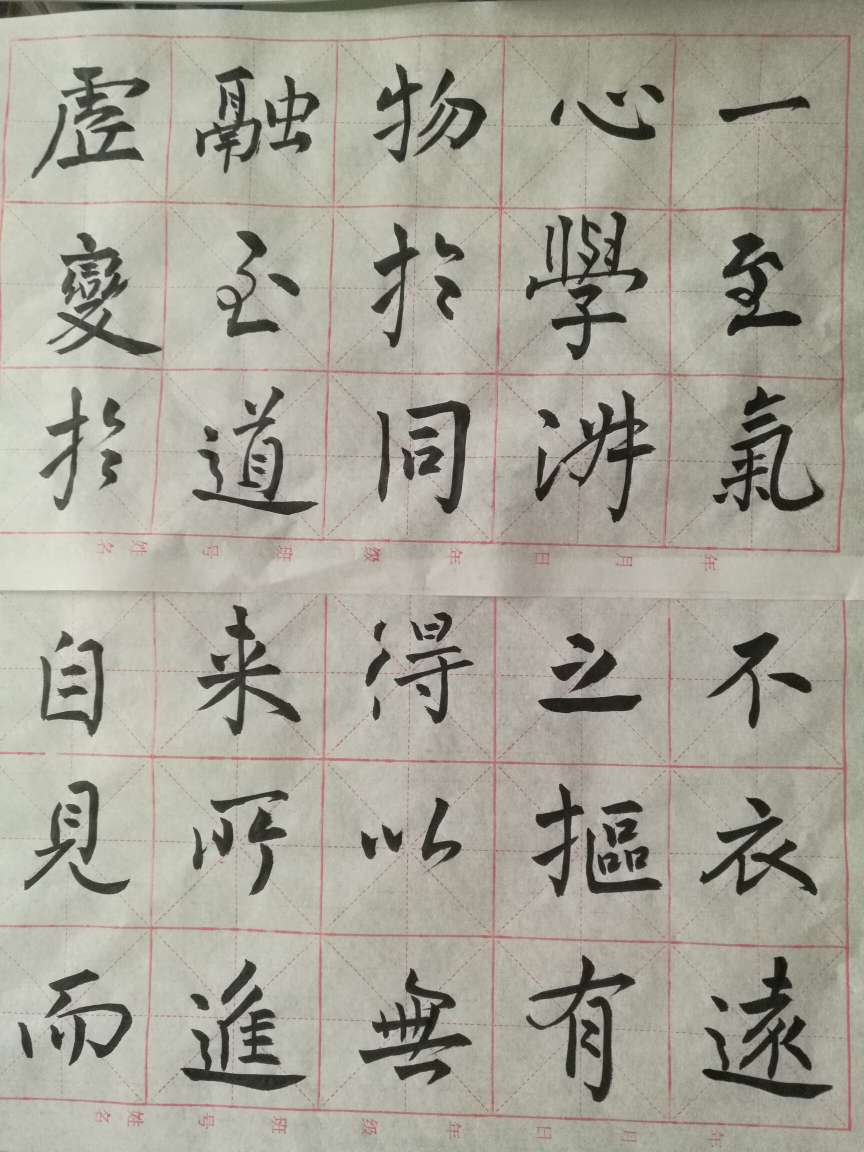 一至氣
心學淵
物於同
融至道
虛變於
年 月 日 年 级 班 号 姓名
不衣遠
之摳有
得以無
来所進
自見而
年 月 日 年 级 班 号 姓名